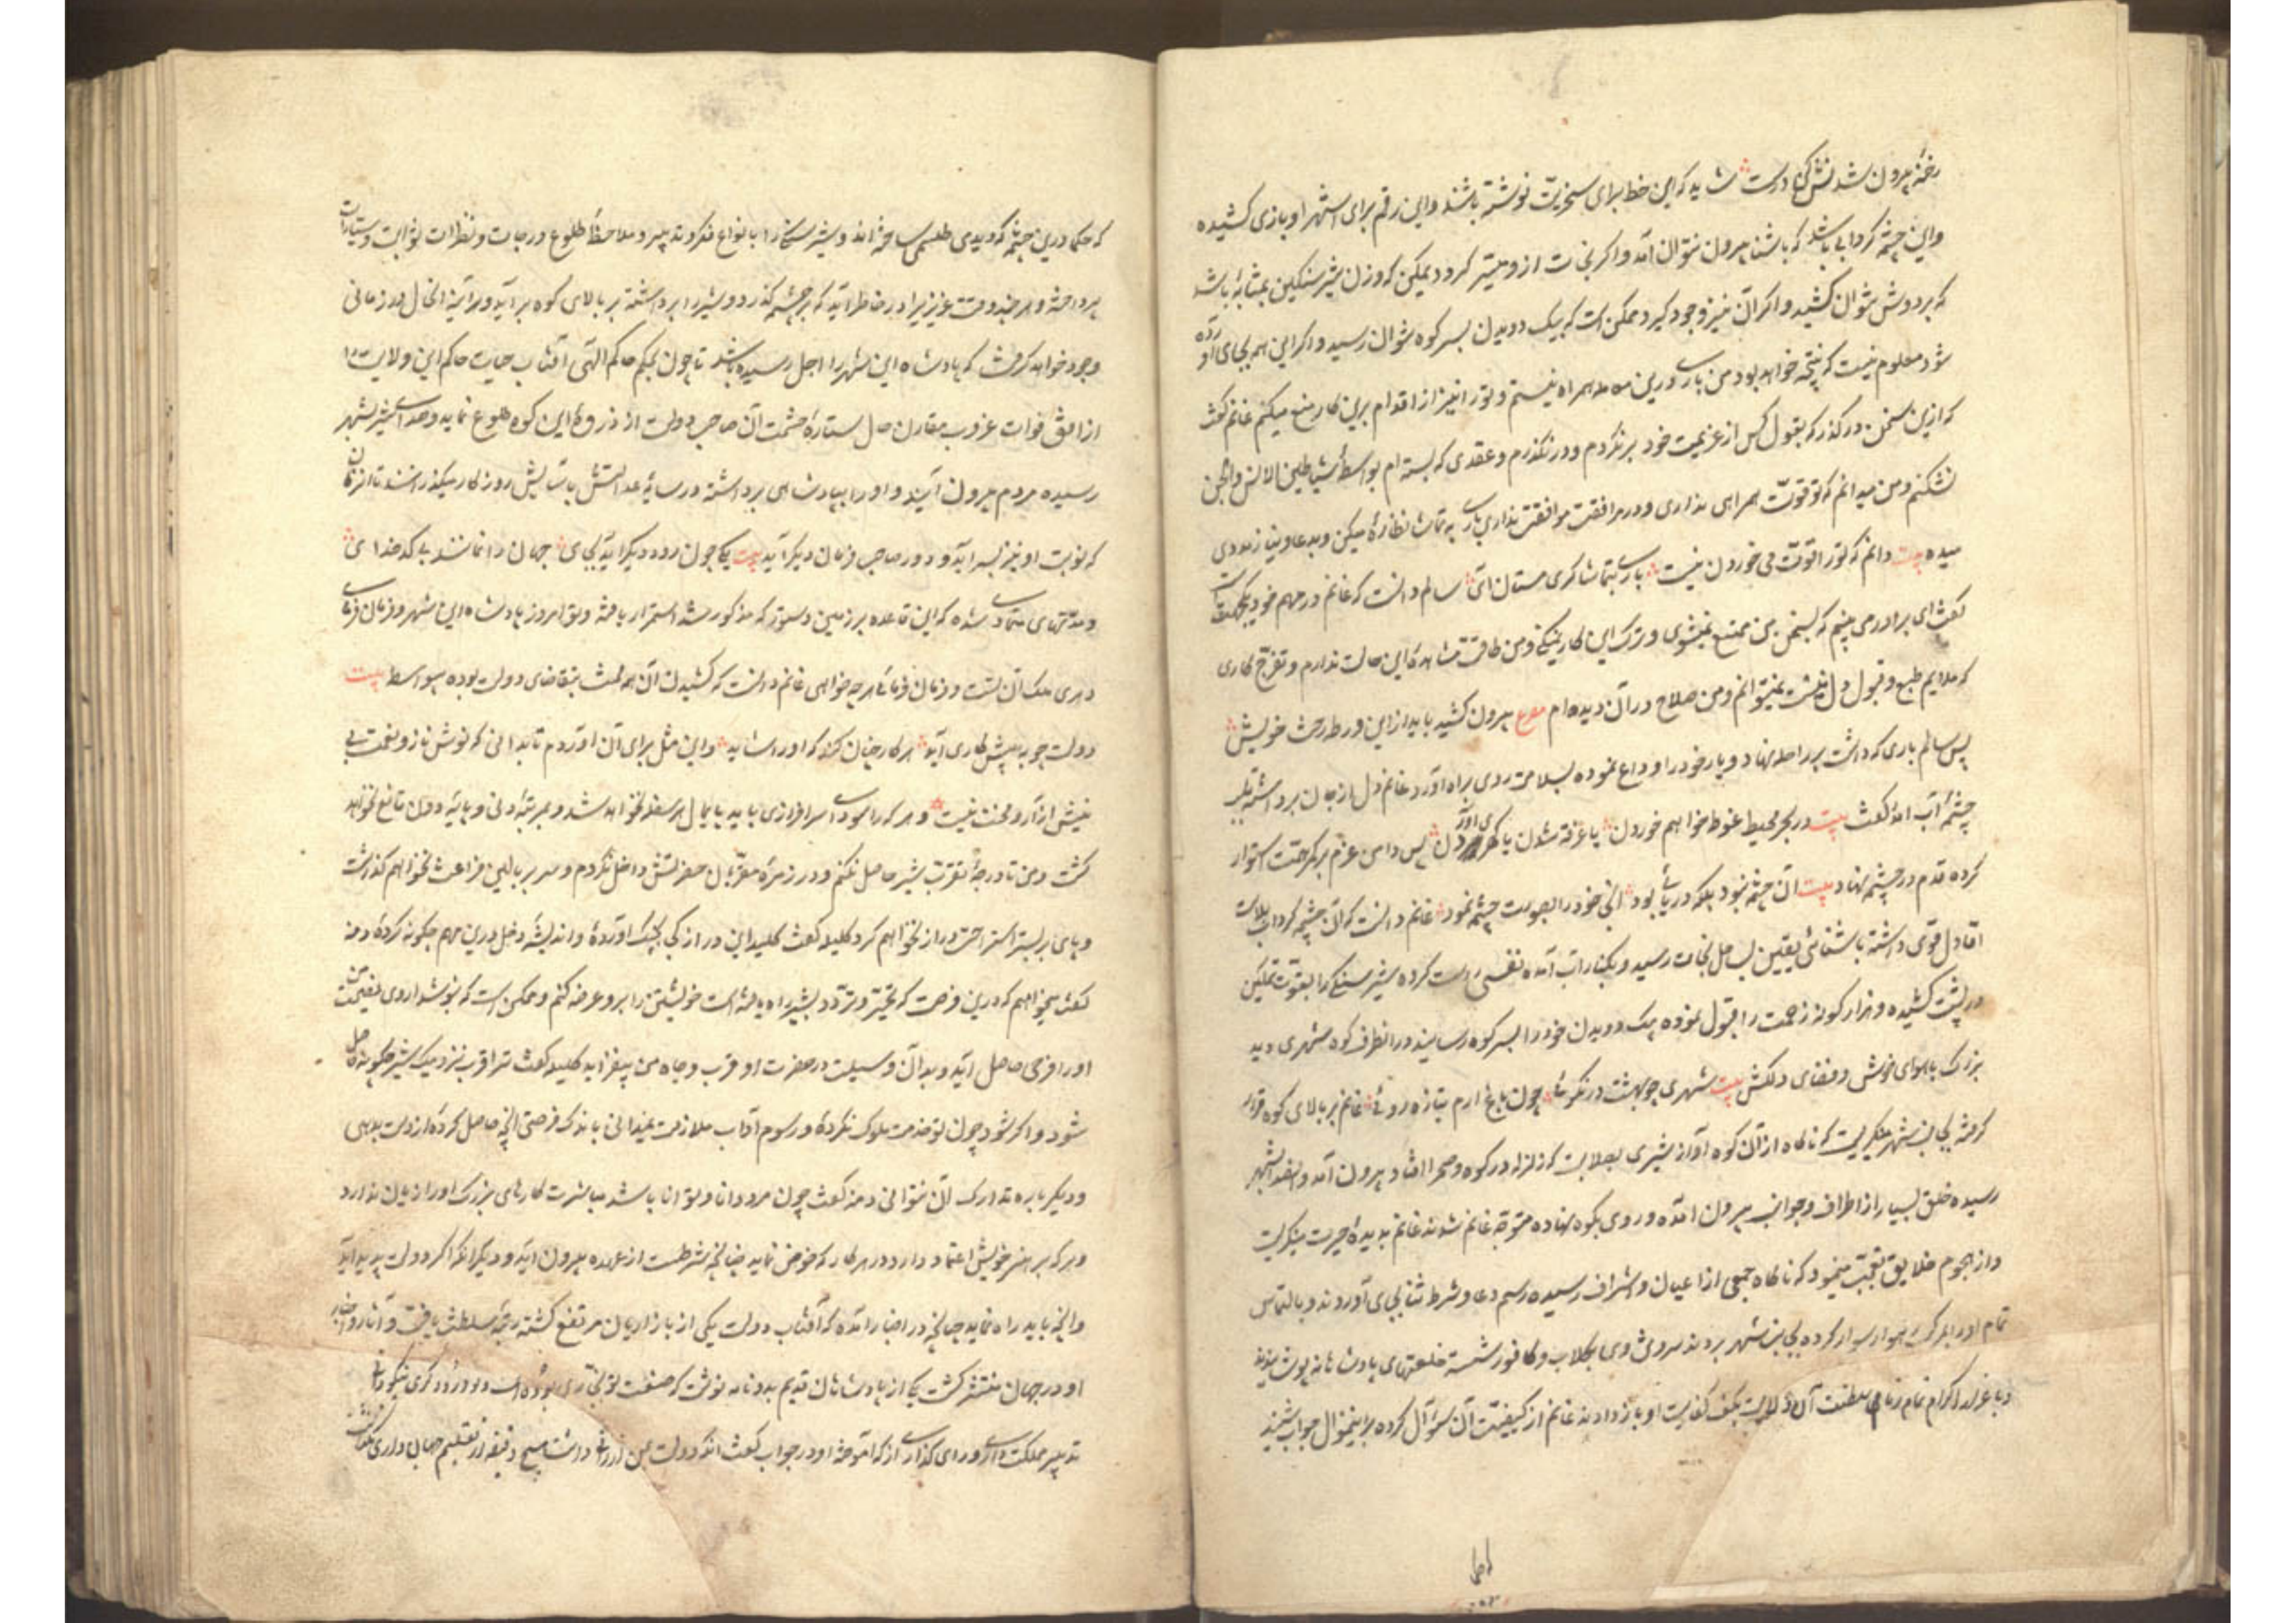 رخنه بیرون شدنش کن درست شاید که این خط برای سخریت نوشته باشند و این رقم برای استهزا و بازی کشیده
و این چشمه گردابی باشد که باشنا بیرون نتوان آمد و اگر نجات ازو میسر گردد یمکن که وزن شیر سنگین بمثابهٔ باشد
که بر دوش نتوان کشید و اگر آن نیز وجود گیرد ممکن است که بیک دویدن بسر کوه نتوان رسید و اگر این همه بجای آورده
شود معلوم نیست که نتیجه چه خواهد بود من باری درین معامله همراه نیستم و ترا نیز از اقدام برین کار منع میکنم غانم گفت
که ازین سخن درگذر که بقول کس از عزیمت خود برنگردم و درنگذرم و عقدی که بسته ام بواسطهٔ شیاطین الانس والجن
نشکنم و من میدانم که تو قوت همراهی نداری و در مرافقت موافقت نداری باری به تماشا نظارهٔ میکن و بدعا و نیاز مددی
میده بیت دانم که ترا قوت می خوردن نیست باری بتماشا گری مستان آی سالم دانست که غانم در مهم خود یکجهت است
گفت ای برادر می بینم که بسخن من ممتنع نمیشوی و ترک این کار نمیکنی و من طاقت مشاهدهٔ این حالت ندارم و تفرج کاری
که ملایم طبع و قبول دل نیست نمیتوانم و من صلاح در آن دیده ام مصرع بیرون کشید باید ازین ورطه رخت خویش
پس سالم باری که داشت بر راحله نهاد و یار خود را وداع نموده بسلامت روی براه آورد و غانم دل از جان برداشته بلب
چشمهٔ آب آمد و گفت بیت در بحر محیط غوطه خواهم خوردن یا غرقه شدن یا گهری آوردن پس دامن عزم بر کمر همت استوار
کرده قدم در چشمه نهاد بیت آن چشمه نبود بلکه دریایی بود آنجا خود را بصورت چشمه نمود غانم دانست که آن چشمه گرداب بلاست
اما دل قوی داشته باشنائی یقین بساحل نجات رسید و بکنار آب آمده نفسی راست کرده شیر سنگی را بقوت تمکین
در پشت کشیده و هزار گونه زحمت را قبول نموده بیک دویدن خود را بسر کوه رسانید و در آنطرف کوه شهری دید
بزرگ با هوای خوش و فضای دلکش بیت شهری چو بهشت در نکوئی چون باغ ارم بتازه روئی غانم بر بالای کوه قرار
گرفته بجانب شهر مینگریست که ناگاه از آن کوه آواز شیری بصلابت که زلزله در کوه و صحرا افتاد بیرون آمد و آن صدا بشهر
رسیده خلق بسیار از اطراف و جوانب بیرون آمده و روی بکوه نهاده متوجه غانم شدند غانم بدیدهٔ حیرت مینگریست
و از هجوم خلایق تعجب مینمود که ناگاه جمعی از اعیان و اشراف رسیده رسم دعا و شرط ثنا بجای آوردند و بالتماس
تمام او را بر مرکب رهوار سوار کرده بجانب شهر بردند سر و تن وی بگلاب و کافور شسته خلعتهای پادشاهانه پوشیدند
و باعزاز و اکرام تمام زمام سلطنت آن ولایت بکف کفایت او باز دادند غانم از کیفیت آن سؤال کرده برین منوال جواب شنید
که حکما درین چشمه که دیدی طلسمی ساخته اند و شیر سنگی را با نواع فکر و تدبیر و ملاحظهٔ طلوع درجات و نظرات ثوابت و سیارات
پرداخته و هر چند وقت عزیزی را در خاطر آید که بر چشمه گذرد و شیر را برداشته بر بالای کوه برآید و هر آینه آنحال در زمانی
وجود خواهد گرفت که پادشاه این شهر را اجل رسیده باشد تا چون بحکم حاکم الهی آفتاب حیات حاکم این ولایت را
از افق فوات غروب مقارن حال ستارهٔ حشمت آن صاحب دولت از ذروهٔ این کوه طلوع نماید و صدای شیر بشهر
رسیده مردم بیرون آیند و او را بپادشاهی برداشته در سایهٔ عدالتش بآسایش روزگار میگذرانند تا آن زمان
که نوبت او نیز بسر آید و دور صاحب فرمان دیگر آید بیت یکی چون رود دیگر آید بجای جهان را نمانند بی کدخدای
و مدتهای متمادی شده که این قاعده برین دستور که مذکور شد استمرار یافته و تو امروز پادشاه این شهر و فرمان فرمای
دهری ملک آن تست و فرمان فرمائی هر چه خواهی غانم دانست که کشیدن آن همه محنت بتقاضای دولت بوده بواسطه بیت
دولت چو به پیش کاری آید هر کار چنان کند که او را شاید و این مثل برای آن آوردم تا بدانی که نوش ناز و نعمت بی
نیش آزار و محنت نیست و هر که را سودای سرافرازی باید پایمال هر سفله نخواهد شد و بمرتبهٔ دنی و پایهٔ دون قانع نخواهد
گشت و من تا درجهٔ تقرب شیر حاصل نکنم و در زمرهٔ مقربان حضرتش داخل نگردم و سر بر بالین فراغت نخواهم گذاشت
و پای بر بستر استراحت دراز نخواهم کرد کلیله گفت کلید این در از کجا بچنگ آوردهٔ و اندیشهٔ دخل درین مهم چگونه کردهٔ دمنه
گفت میخواهم که درین فرصت که تحیر و تردد بشیر راه یافته است خویشتن را برو عرضه کنم و ممکن است که بنوشداروی نصیحت من
او را فرحی حاصل آید و بدان وسیلت در حضرت او قرب و جاه من بیفزاید کلیله گفت ترا قرب نزدیک شیر چگونه حاصل
شود و اگر شود چون تو خدمت ملوک نکردهٔ و رسوم آداب ملازمت نمیدانی باندک فرصتی آنچه حاصل کردهٔ از دست بدهی
و دیگر باره تدارک آن نتوانی دمنه گفت چون مرد دانا و توانا باشد مباشرت کارهای بزرگ او را زیان ندارد
و هر که بر هنر خویش اعتماد دارد در هر کار که خوض نماید چنانچه شرطست از عهده بیرون آید و دیگر آنکه اگر دولت پدید آید
و آنچه باید راه نماید چنانچه در اخبار آمده که آفتاب دولت یکی از بازاریان مرتفع گشته رتبهٔ سلطنت یافت و آثار و اخبار
او در جهان منتشر گشت یکی از پادشاهان قدیم بدو نامه نوشت که صنعت تو نجاری بوده است و درودگری نیکو دانی
تدبیر مملکت داری و رای گذاری از که آموختهٔ او در جواب گفت آنکه دولت بمن ارزانی داشت هیچ دقیقه از تعلیم جهان داری